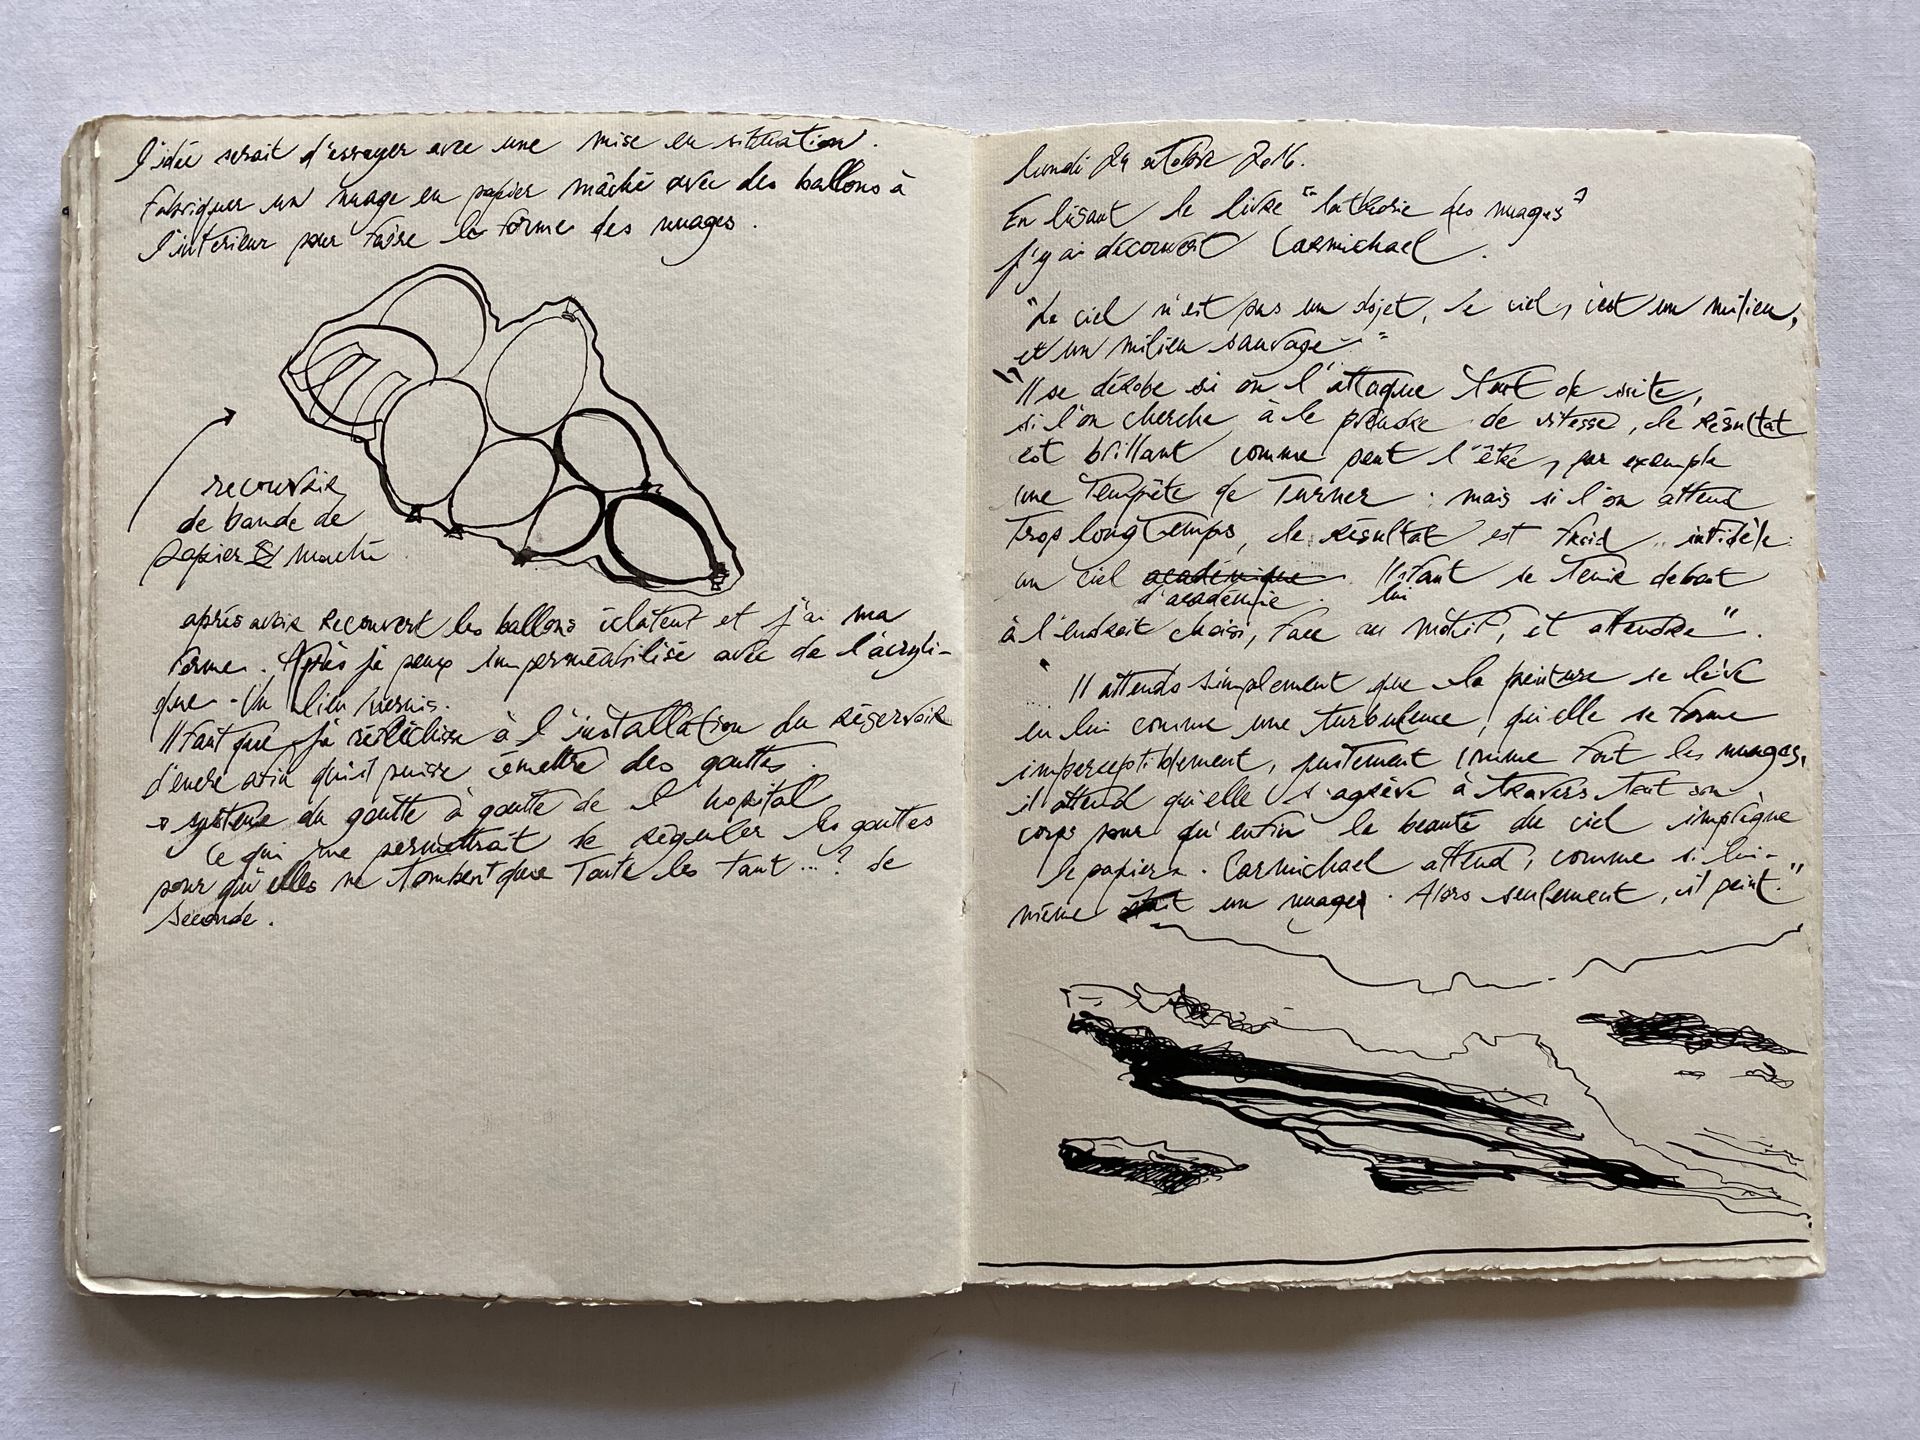 l'idée serait d'essayer avec une mise en situation.
Fabriquer un nuage en papier mâché avec des ballons à
l'intérieur pour faire la forme des nuages.
recouvrir
de bande de
papier mâché
après avoir recouvert les ballons éclatent et j'ai ma
forme. Après je peux imperméabilisé avec de l'acryli-
que - Un vernis.
Il faut que je réfléchisse à l'installation du réservoir
d'encre afin qu'il puisse émettre des gouttes.
→ système du goutte à goutte de l'hopital
ce qui me permettrait de réguler les gouttes
pour qu'elles ne tombent que toute les tant...? de
seconde.
lundi 24 octobre 2016.
En lisant le livre "la théorie des nuages"
j'y ai découvert Carmichael.
"Le ciel n'est pas un objet, le ciel, c'est un milieu,
et un milieu sauvage."
"Il se dérobe si on l'attaque tout de suite,
si l'on cherche à le prendre de vitesse, le résultat
est brillant comme peut l'être, par exemple
une Tempête de Turner : mais si l'on attend
trop longtemps, le résultat est froid .. infidèle:
un ciel académique. Il faut se tenir debout
d'académie. lui
à l'endroit choisi, face au motif, et attendre".
Il attends simplement que la peinture se lève
en lui comme une turbulence, qu'elle se forme
imperceptiblement, justement comme font les nuages,
il attend qu'elle s'agrève à travers tout son
corps pour qu'enfin la beauté du ciel imprègne
le papier. Carmichael attend, comme si lui-
même était un nuage. Alors seulement, il peint."